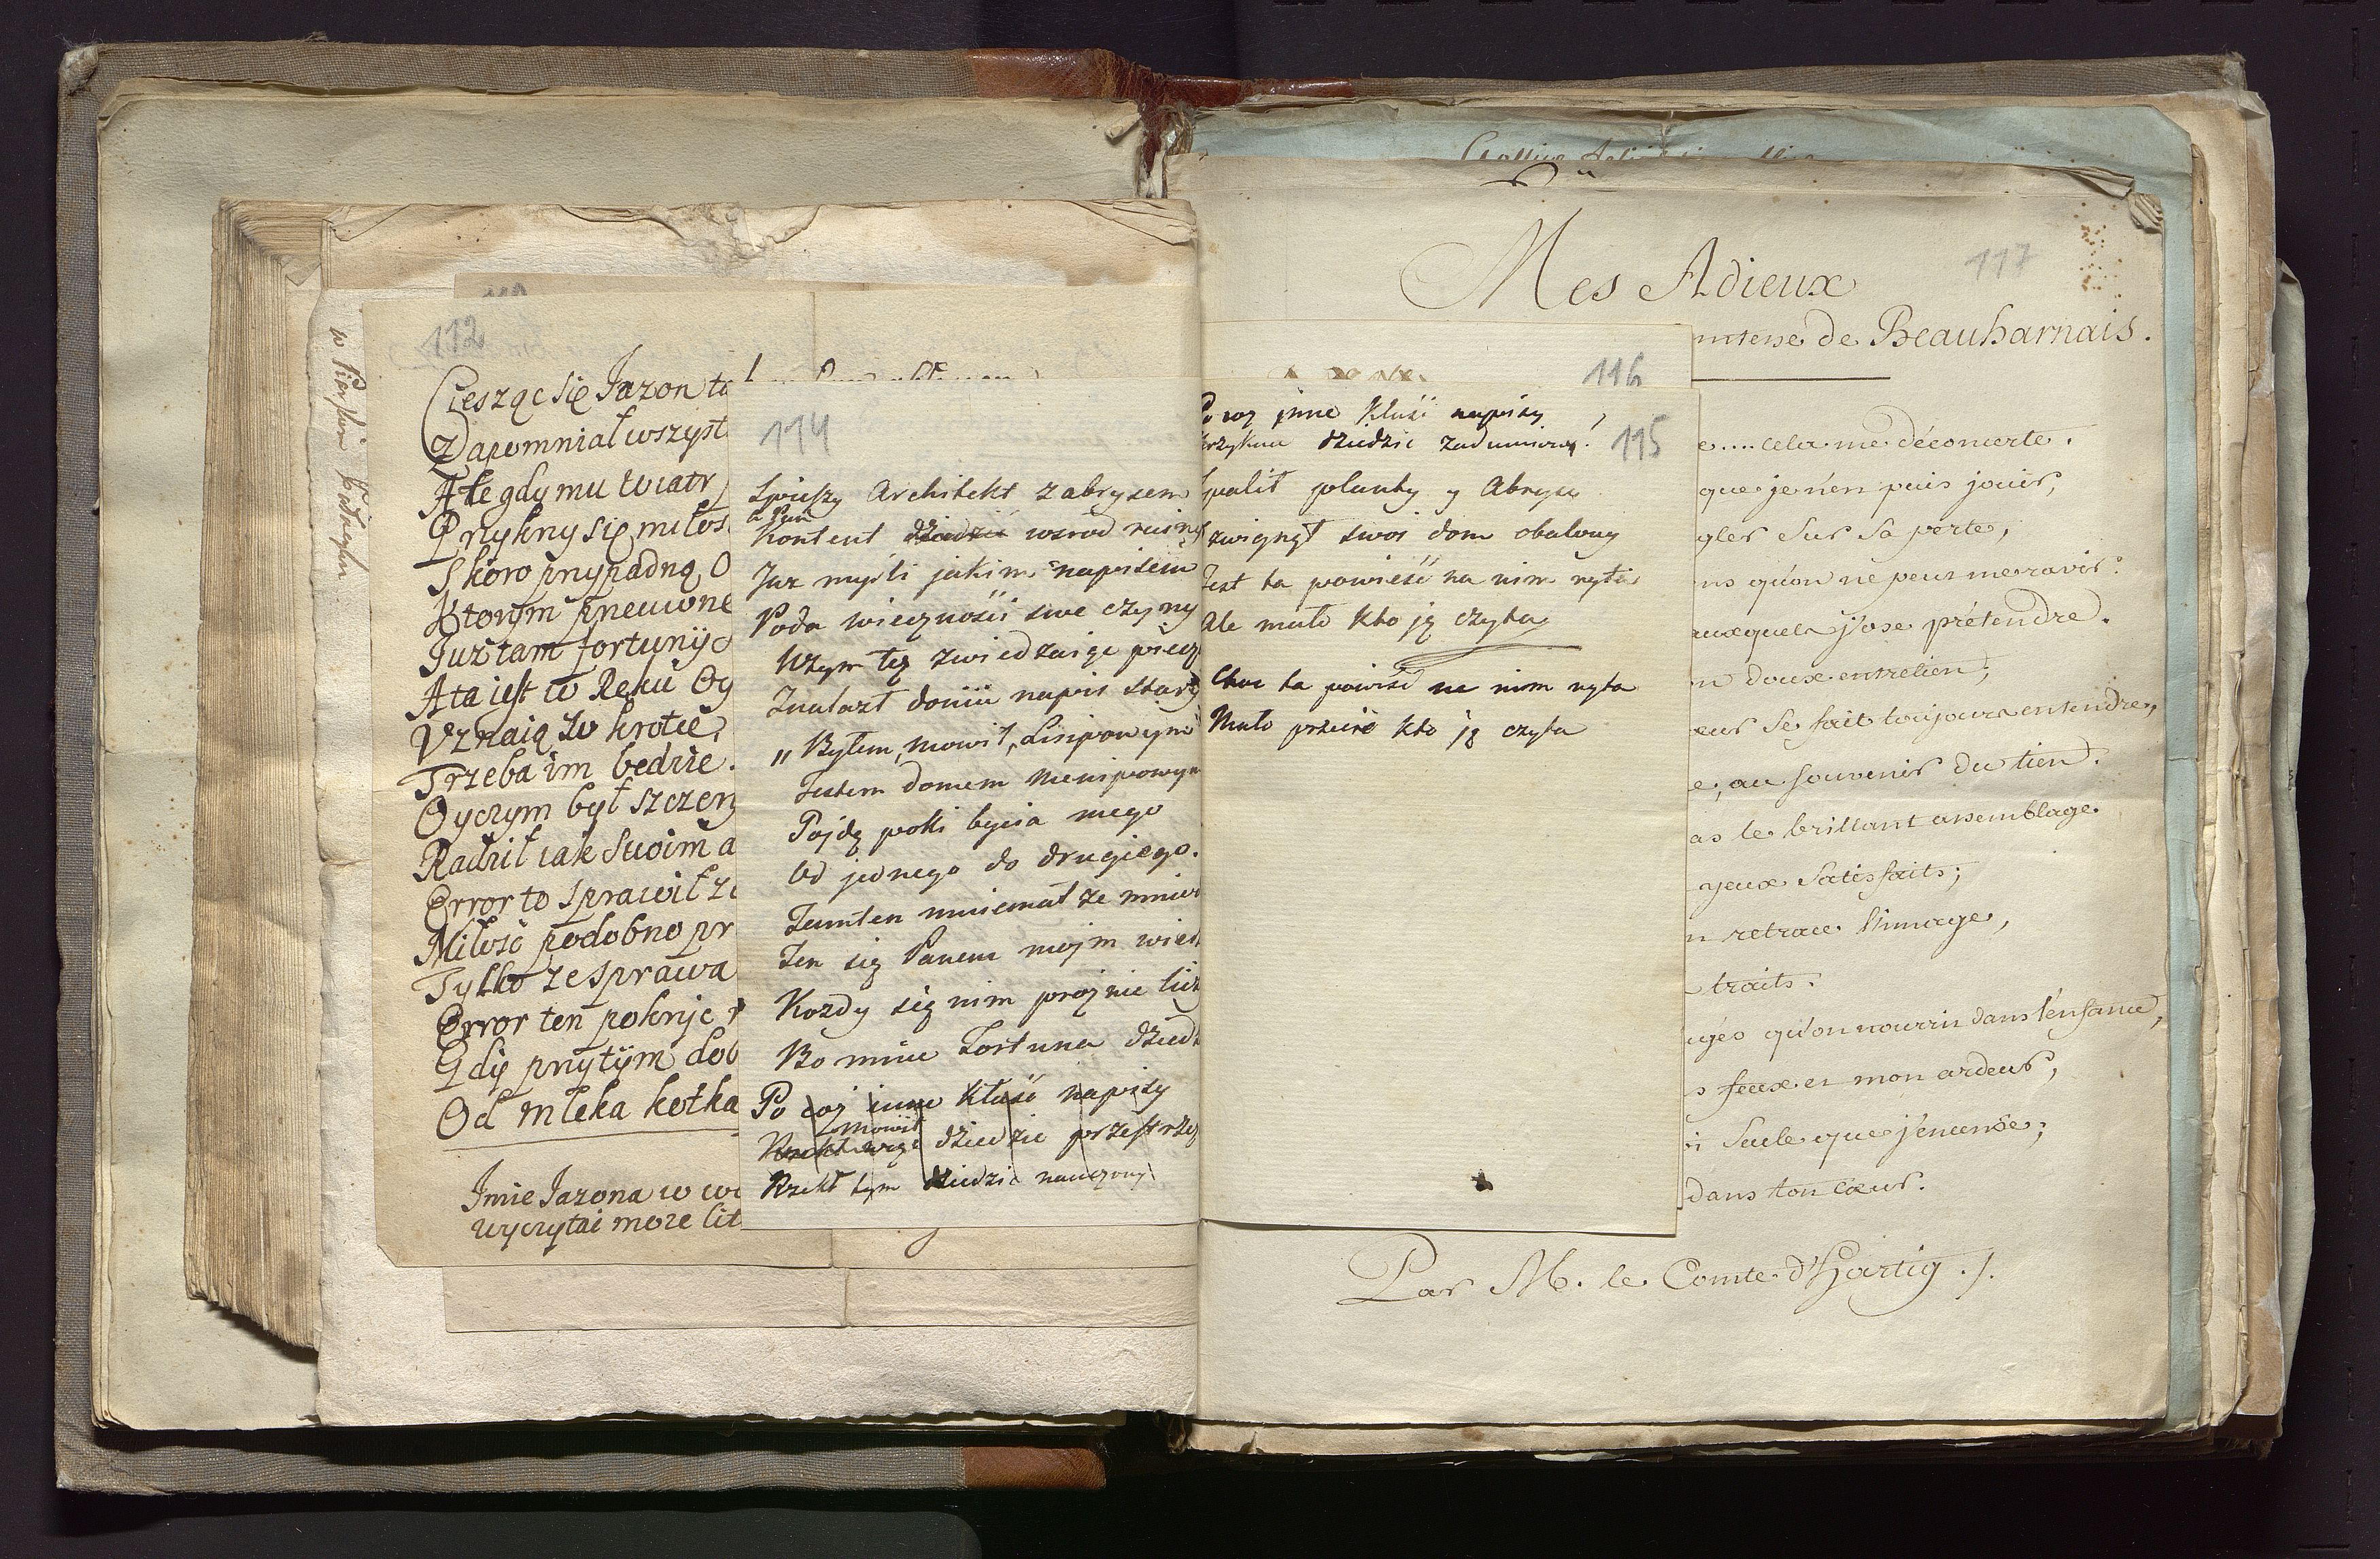 112
Ciesząc się Jazon
Zapomniał wszyst
Ale gdy mu wiatr
Przykny się miłos
Skoro przypadną O
Ktorym pnewone
Iuż tam fortuny
A ta iest w Ręku Oy
Vznaią to krotce,
Trzeba im będzie.
Oyczym był szczen
Radził iak Swoim a
Error to sprawił ze
Miłość podobno pr
Tylko ze sprawa
Error ten pokryje
Gdy przytym dob
Od mleka kotka
Imie Jazona w
wyczytai może lit
114
Spieszy Architekt z abrysem
a Pan
Kontent dziedzic wsrod ruiny
Juz mysli jakim napisem
Poda wieczności swe czyny
Wzym tę zwiedzaiąc
Znalazł domu napis stary
„Byłem, mowił, Lisipowym
Jestem domem Menipowym
Pojdę poki bycia mego
Od jednego do drugiego.
Tamten mniemał ze mnie
Ten się Panem mojm
Kozdy się nim proznie
Bo mnie Fortuna
Po coz inne kłaść napisy
mowił
dziedzic
Rzekł tym dziedzic nauczony
115
Po coz jnne kłaść napisy
Krzyknu dziedzic zadumiony!
Spalił planty y Abrysy
zwignął swoi dom obalony
Jest ta powieść na nim ryta
Ale mało kto ją czyta
Choc ta powieść na nim ryta
Mało przecie kto ją czyta
116
117
Mes Adieux
mtesse de Beauharnais.
e.... cela me déconcerte.
que je n'en puis jouir,
gler sur sa perte,
ns qu'on ne peut me ravir:
auxquels j'ose prétendre.
n doux entretien,
eur se fait toujours entendre,
e, au souvenir du tien.
as le brillant assemblage
yeux satisfaits;
n retrace l'image,
traits.
ugés qu'on nourrit dans l'enfance,
s feux et mon ardeur,
i seule que j'encense;
dans ton cœur.
Par M. le Comte d'Hartig ./.